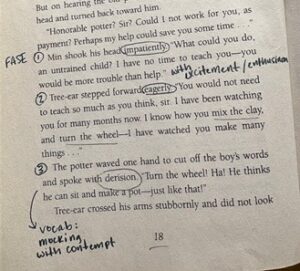 But on hearing the
head and turned back toward him.
"Honorable potter? Sir? Could I not work for you, as
payment? Perhaps my help could save you some time . .
FASE ① Min shook his head impatiently. "What could you do,
an untrained child? I have no time to teach you—you
would be more trouble than help."
with excitement/enthusiasm
② Tree-ear stepped forward eagerly. "You would not need
to teach so much as you think, sir. I have been watching
you for many months now. I know how you mix the clay,
and turn the wheel—I have watched you make many
things . . ."
③ The potter waved one hand to cut off the boy's words
and spoke with derision. "Turn the wheel! Ha! He thinks
he can sit and make a pot—just like that!"
Tree-ear crossed his arms stubbornly and did not look
vocab:
mocking
with contempt
18